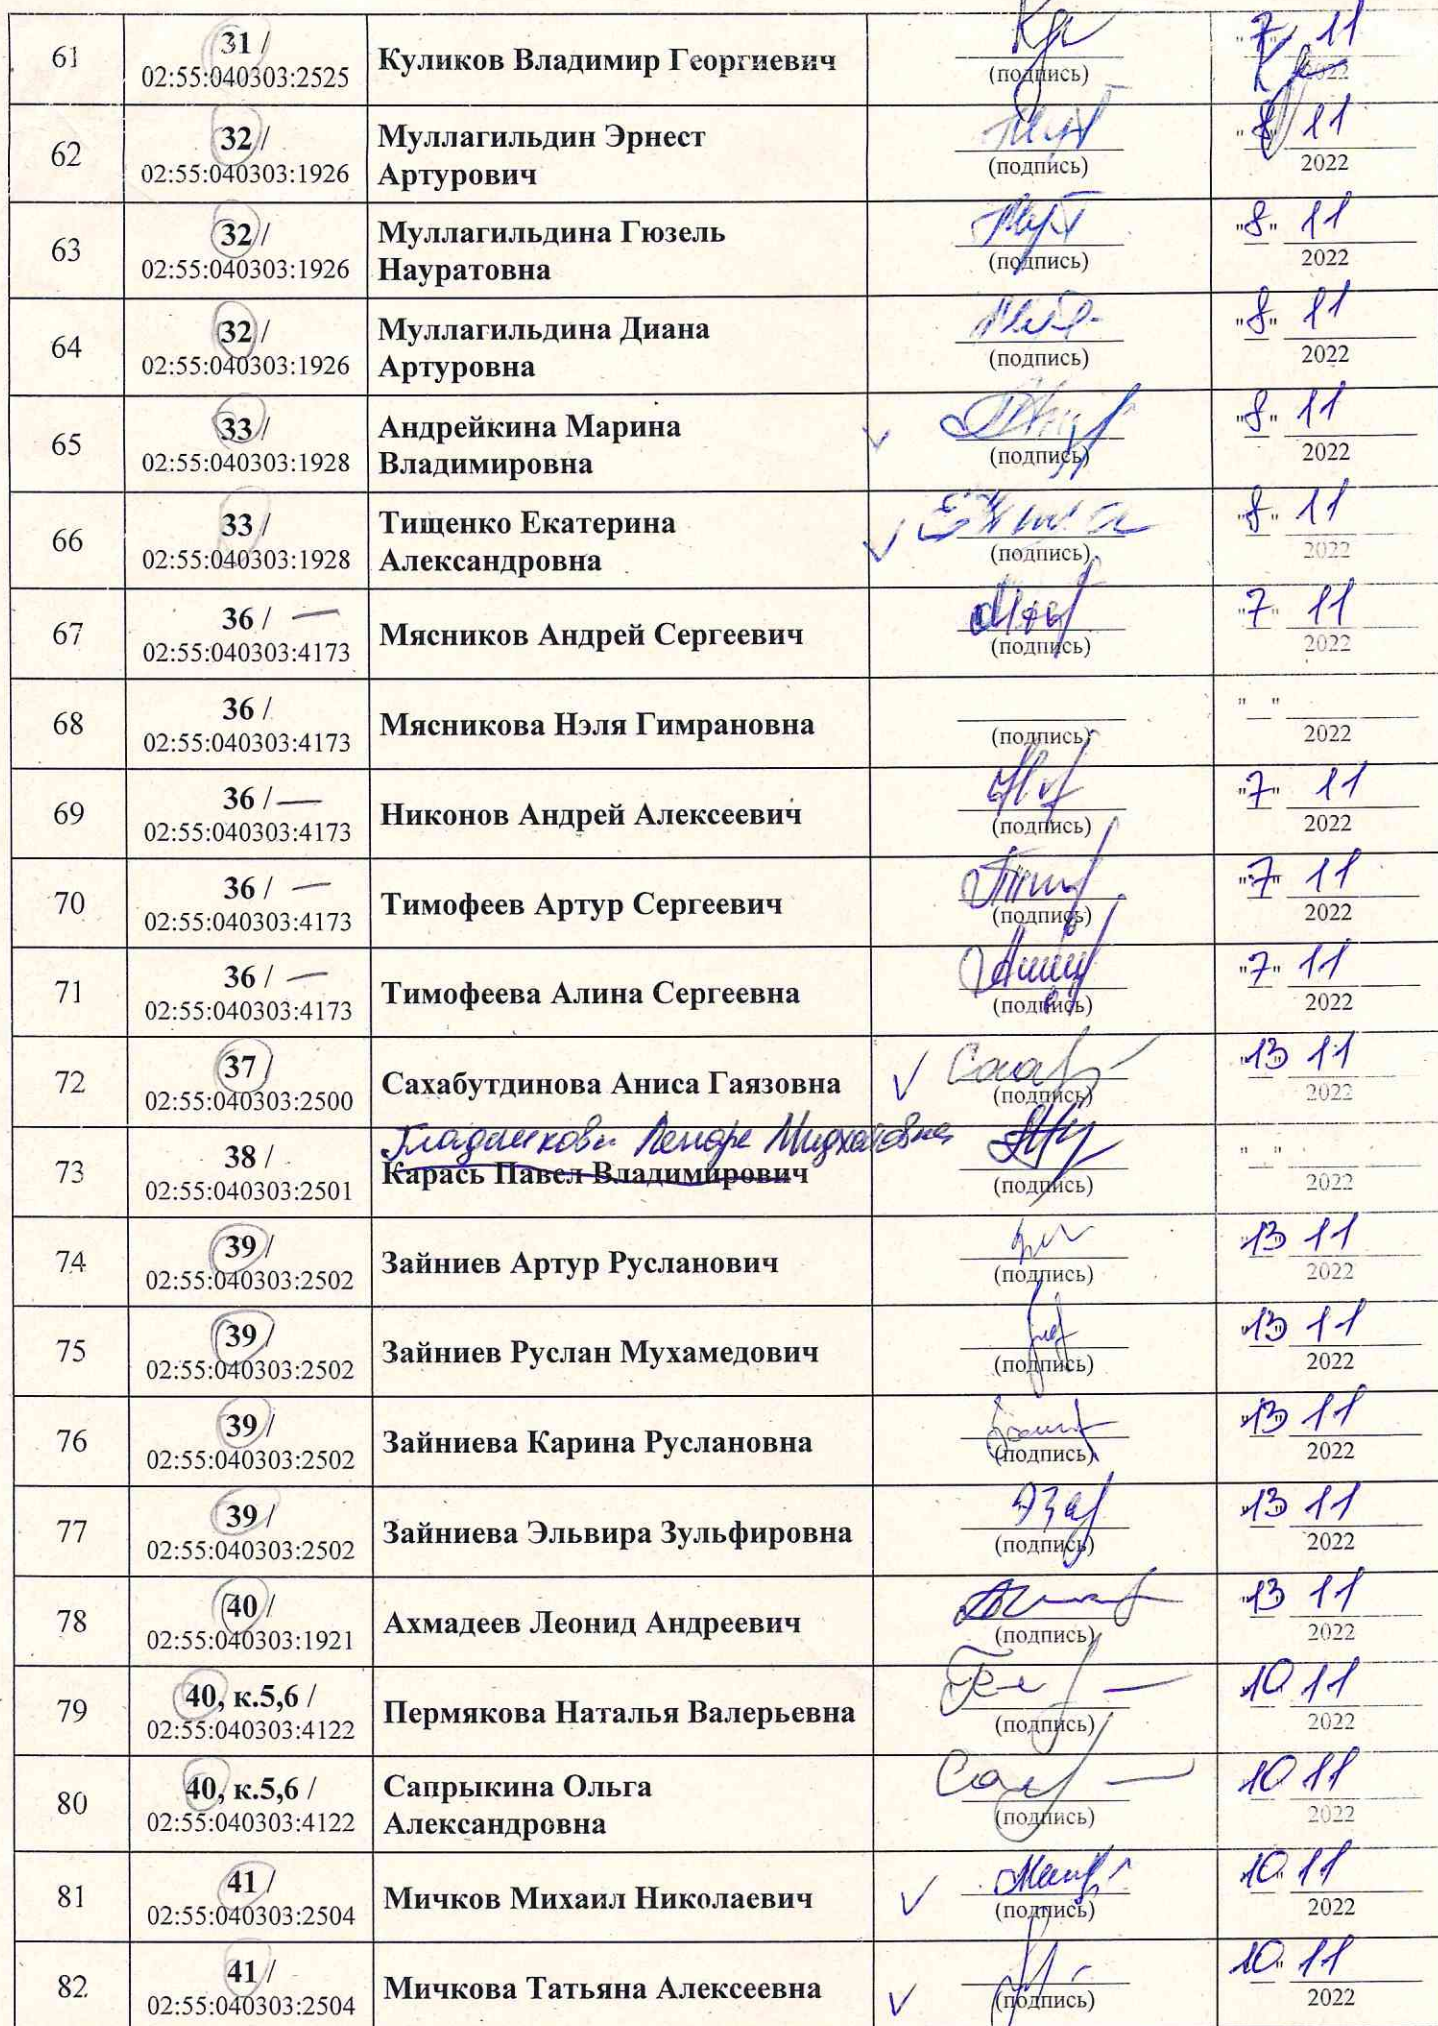 61 31 / 02:55:040303:2525 Куликов Владимир Георгиевич (подпись) "7" 11 2022
62 32 / 02:55:040303:1926 Муллагильдин Эрнест Артурович (подпись) "8" 11 2022
63 32 / 02:55:040303:1926 Муллагильдина Гюзель Науратовна (подпись) "8" 11 2022
64 32 / 02:55:040303:1926 Муллагильдина Диана Артуровна (подпись) "8" 11 2022
65 33 / 02:55:040303:1928 Андрейкина Марина Владимировна (подпись) "8" 11 2022
66 33 / 02:55:040303:1928 Тищенко Екатерина Александровна (подпись) "8" 11 2022
67 36 / — 02:55:040303:4173 Мясников Андрей Сергеевич (подпись) "7" 11 2022
68 36 / 02:55:040303:4173 Мясникова Нэля Гимрановна (подпись) " " 2022
69 36 / — 02:55:040303:4173 Никонов Андрей Алексеевич (подпись) "7" 11 2022
70 36 / — 02:55:040303:4173 Тимофеев Артур Сергеевич (подпись) "7" 11 2022
71 36 / — 02:55:040303:4173 Тимофеева Алина Сергеевна (подпись) "7" 11 2022
72 37 / 02:55:040303:2500 Сахабутдинова Аниса Гаязовна (подпись) "13" 11 2022
73 38 / 02:55:040303:2501 Карась Павел Владимирович (подпись) " " 2022
74 39 / 02:55:040303:2502 Зайниев Артур Русланович (подпись) "13" 11 2022
75 39 / 02:55:040303:2502 Зайниев Руслан Мухамедович (подпись) "13" 11 2022
76 39 / 02:55:040303:2502 Зайниева Карина Руслановна (подпись) "13" 11 2022
77 39 / 02:55:040303:2502 Зайниева Эльвира Зульфировна (подпись) "13" 11 2022
78 40 / 02:55:040303:1921 Ахмадеев Леонид Андреевич (подпись) "13" 11 2022
79 40, к.5,6 / 02:55:040303:4122 Пермякова Наталья Валерьевна (подпись) "10" 11 2022
80 40, к.5,6 / 02:55:040303:4122 Сапрыкина Ольга Александровна (подпись) "10" 11 2022
81 41 / 02:55:040303:2504 Мичков Михаил Николаевич (подпись) "10" 11 2022
82 41 / 02:55:040303:2504 Мичкова Татьяна Алексеевна (подпись) "10" 11 2022